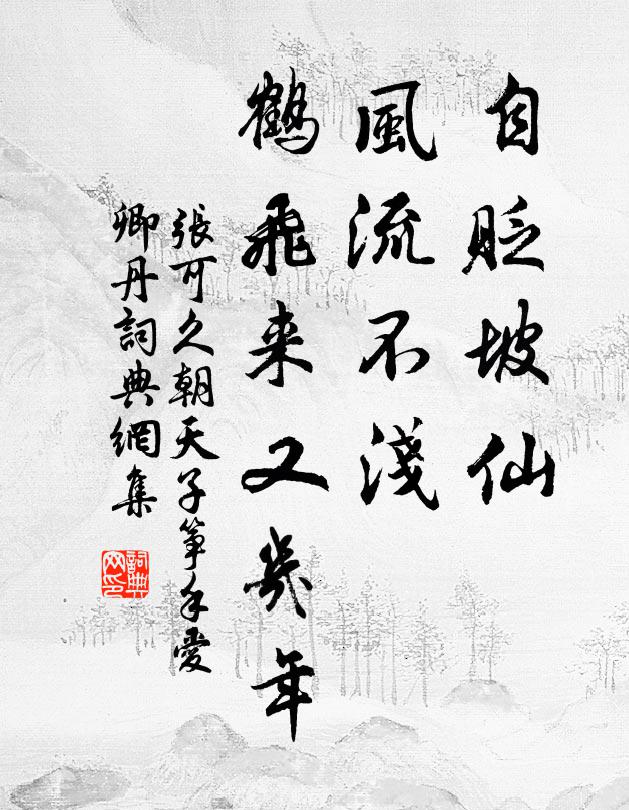 自貶坡仙
風流不淺
鶴飛来又幾年
張可久朝天子箏手愛
卿丹詞典網集
詞典
网印